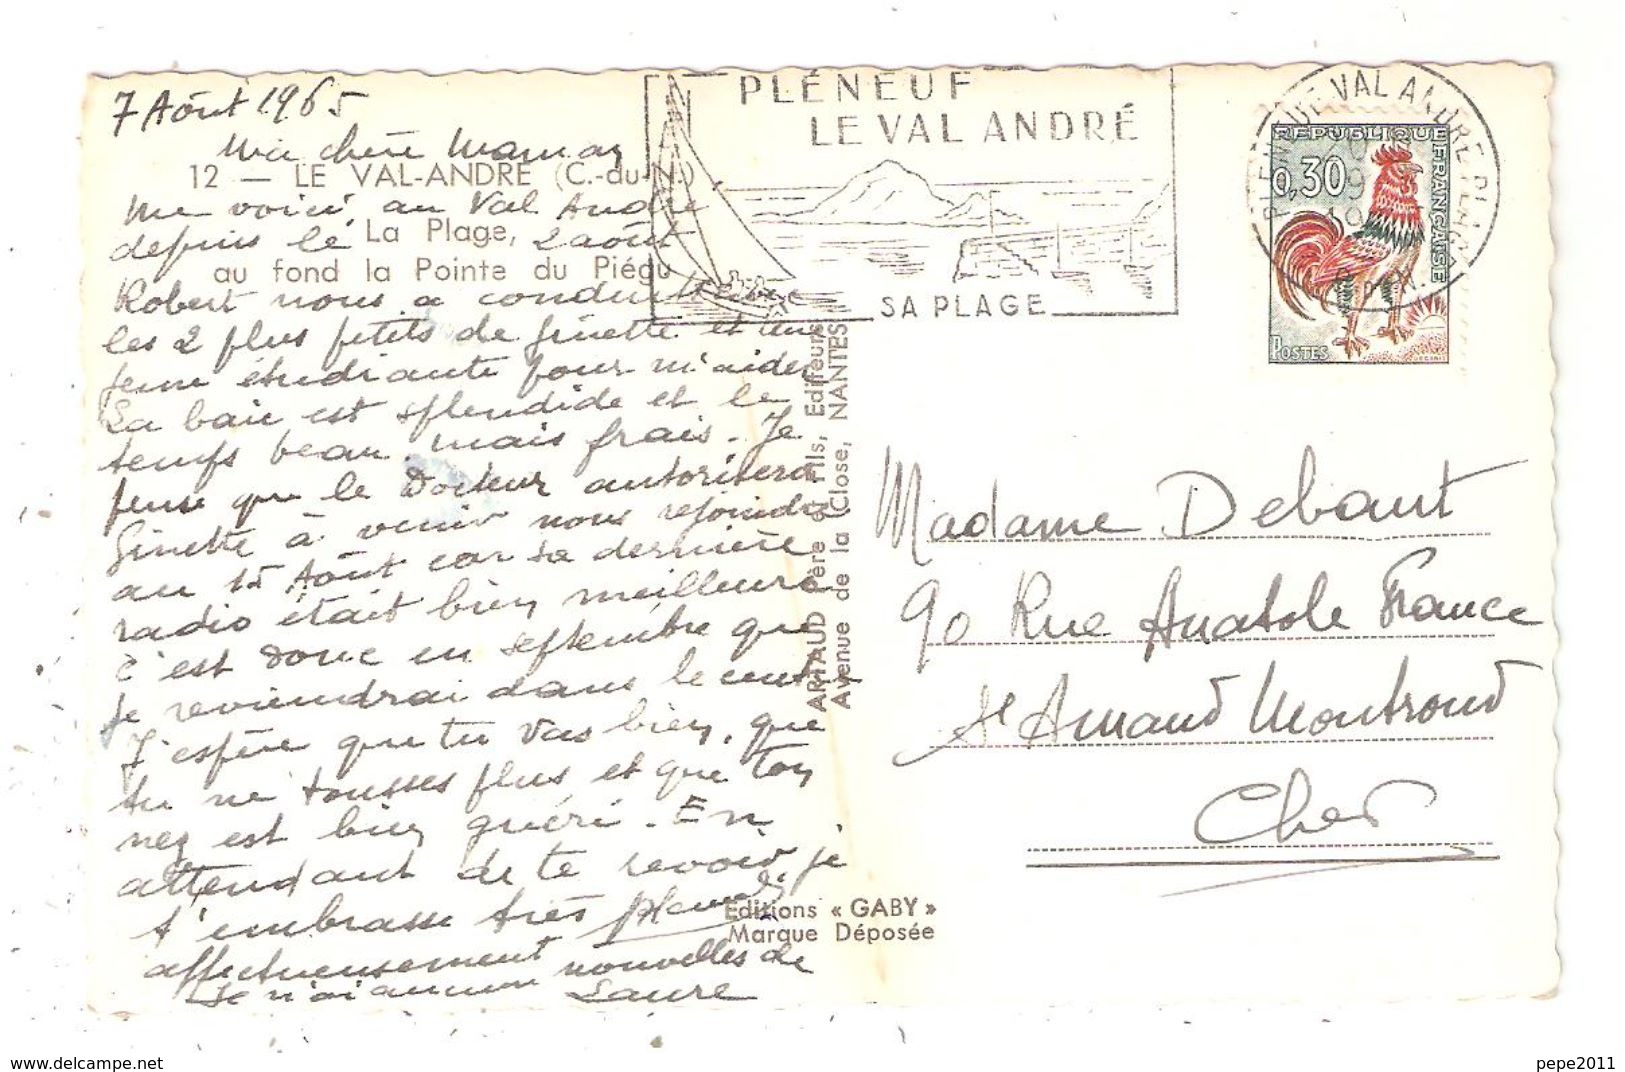 7 Août 1965
Ma chère Maman
12 — LE VAL-ANDRÉ (C.-du-N.)
Me voici au Val André
La Plage,
depuis le 2 août
au fond la Pointe du Piégu
Robert nous a conduit
les 2 plus petits de Ginette et une
jeune étudiante pour m'aider
La baie est splendide et le
temps beau mais frais. Je
pense que le Docteur autorisera
Ginette à venir nous rejoindre
au 15 Août car sa dernière
radio était bien meilleure
c'est donc en septembre que
je reviendrai dans le
J'espère que tu vas bien, que
tu ne tousses plus et que ton
nez est bien guéri. En
attendant de te revoir je
t'embrasse très
affectueusement
Je n'ai aucune nouvelles de
Laure
PLÉNEUF
LE VAL ANDRÉ
SA PLAGE
PLENEUF VAL ANDRE PLAGE
RÉPUBLIQUE FRANÇAISE
0,30
POSTES
ARTAUD Père et Fils, Editeurs
Avenue de la Close, NANTES
Editions « GABY »
Marque Déposée
Madame Debaut
90 Rue Anatole France
St Amand Montrond
Cher
www.delcampe.net
pepe2011